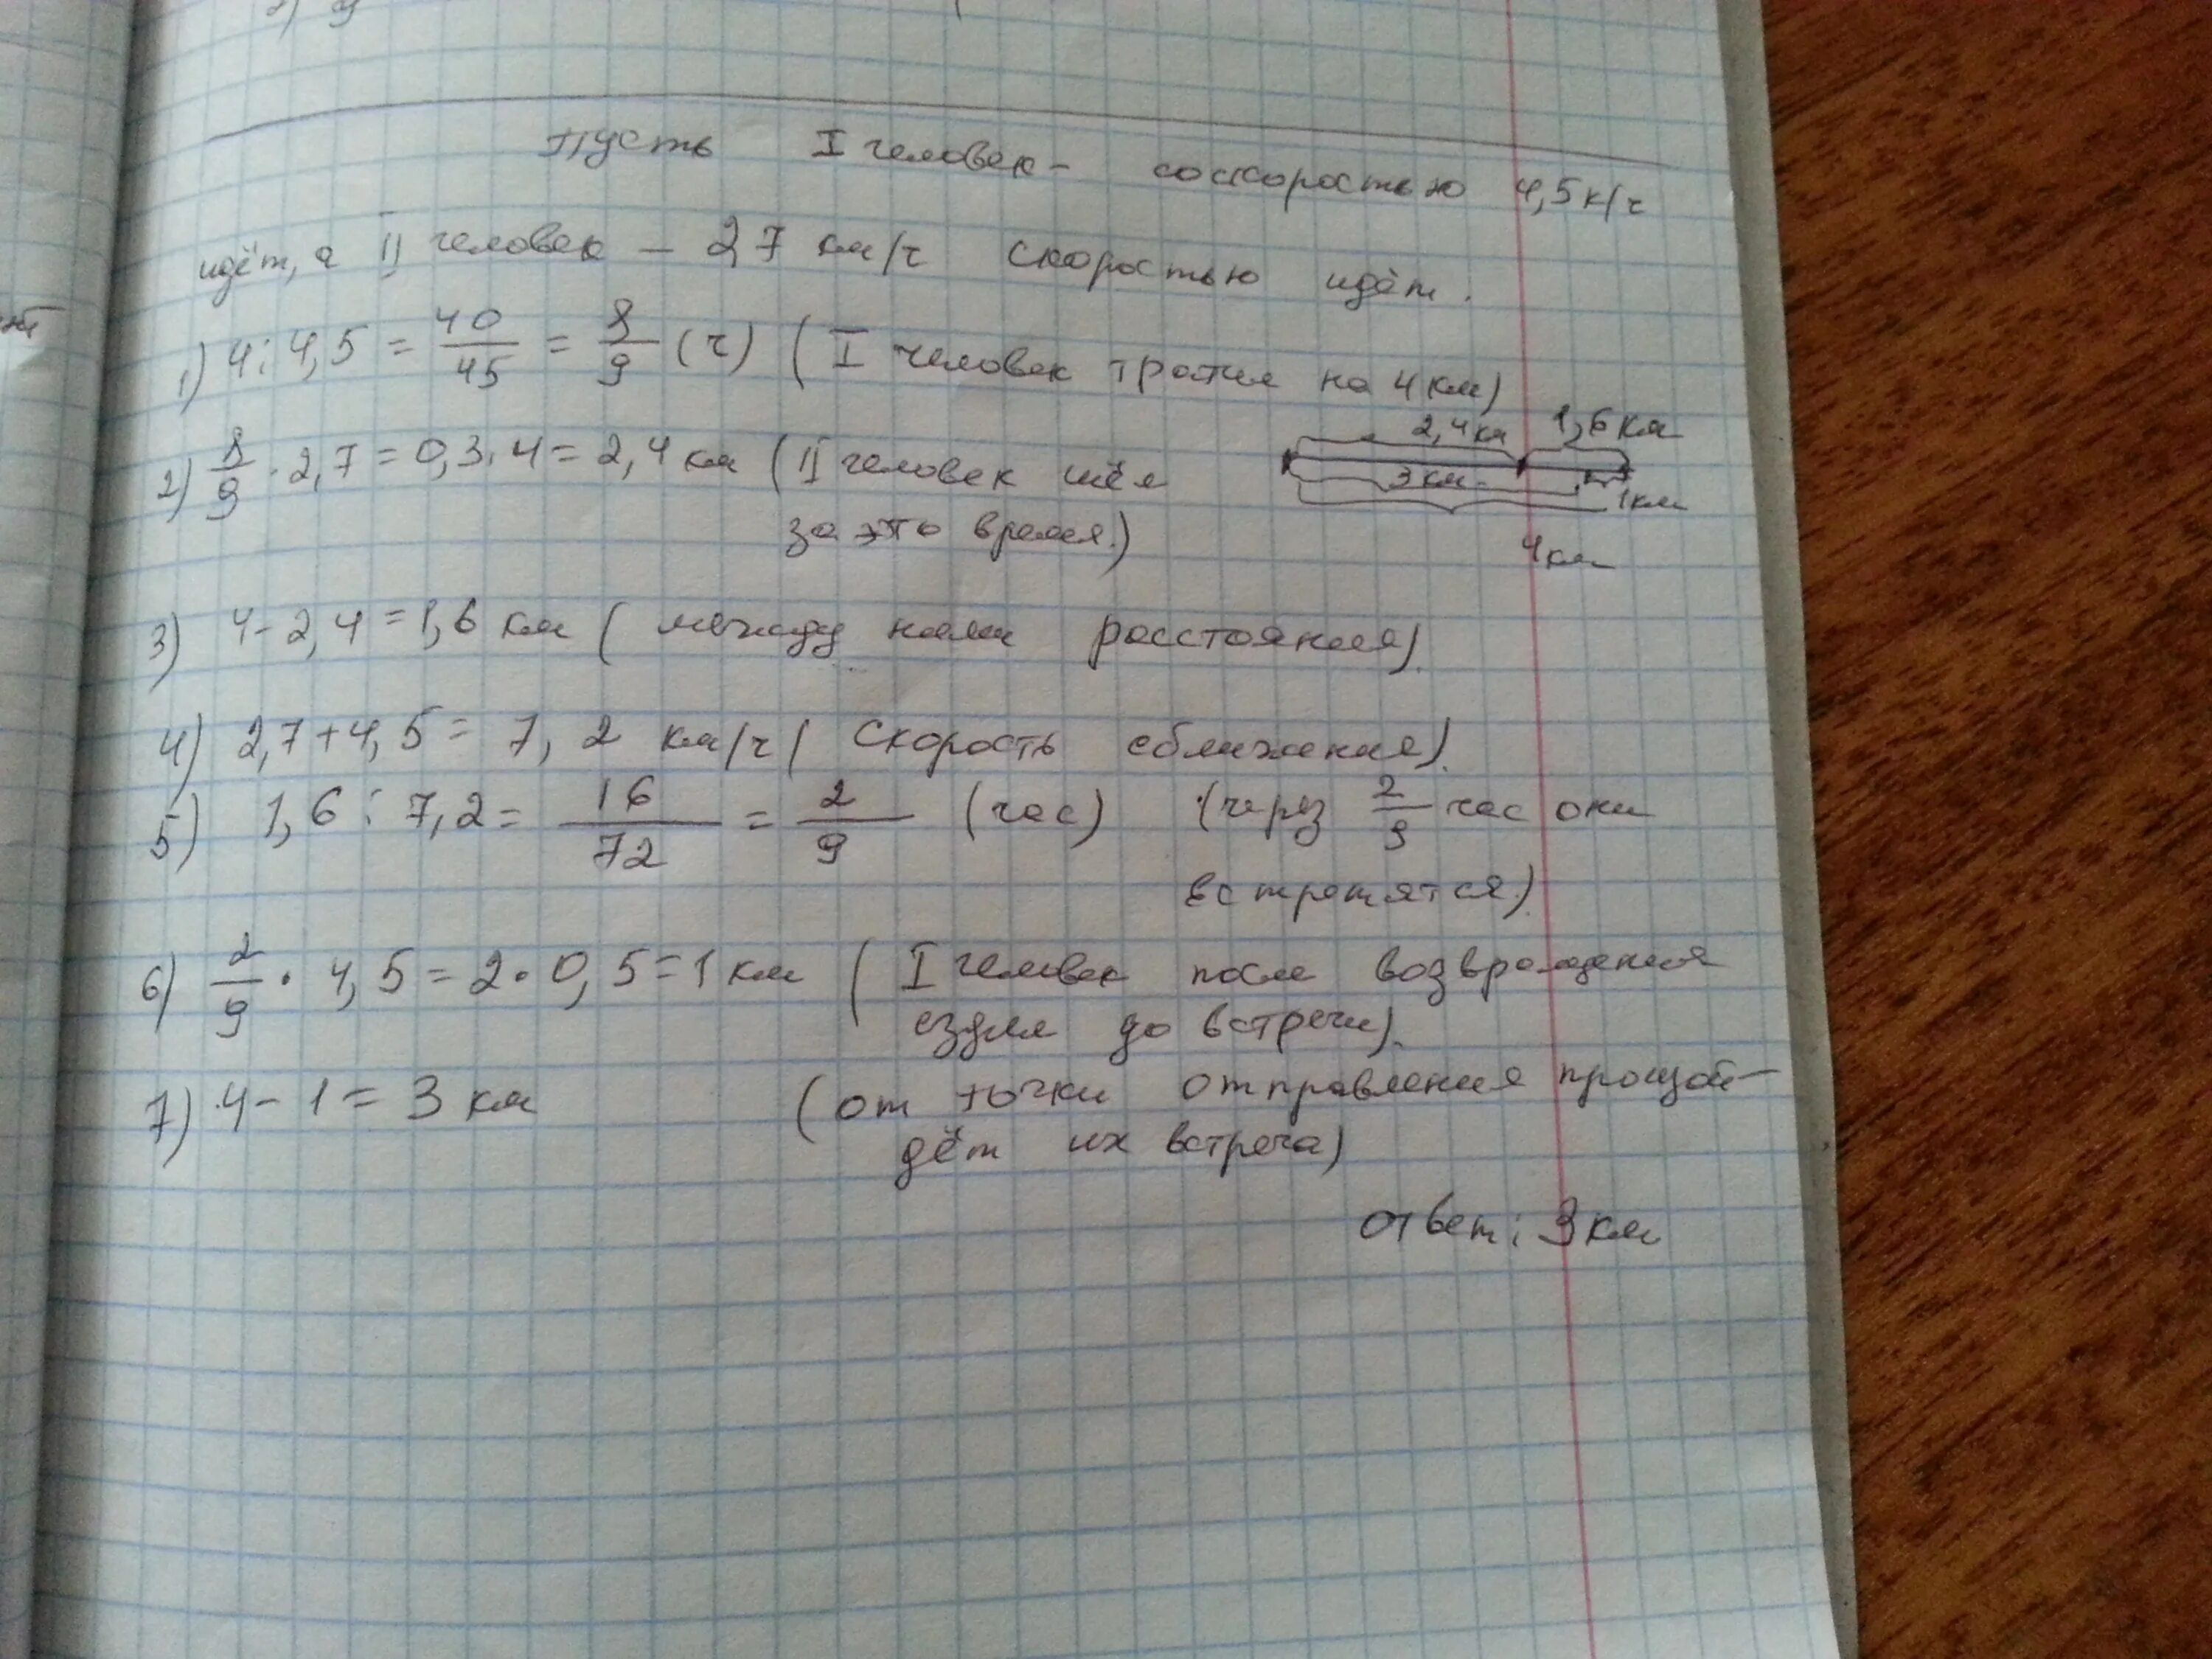 Пусть I человек - соскоростью 4,5 к/ч
идёт, а II человек - 2,7 км/ч скоростью идёт.
1) 4 : 4,5 = 40/45 = 8/9 (ч) ( I человек тратил на 4 км)
2) 8/9 · 2,7 = 0,3 · 4 = 2,4 км ( II человек шёл
за это время.)
2,4 км 1,6 км
3 км
1 км
4 км
3) 4 - 2,4 = 1,6 км ( между ними расстояния).
4) 2,7 + 4,5 = 7,2 км/ч ( Скорость сближения).
5) 1,6 : 7,2 = 16/72 = 2/9 (час) (через 2/9 час они
встретятся.)
6) 2/9 · 4,5 = 2 · 0,5 = 1 км ( I человек после возвращения
ездил до встречи).
7) 4 - 1 = 3 км (от точки отправления произой-
дёт их встреча)
Ответ: 3 км